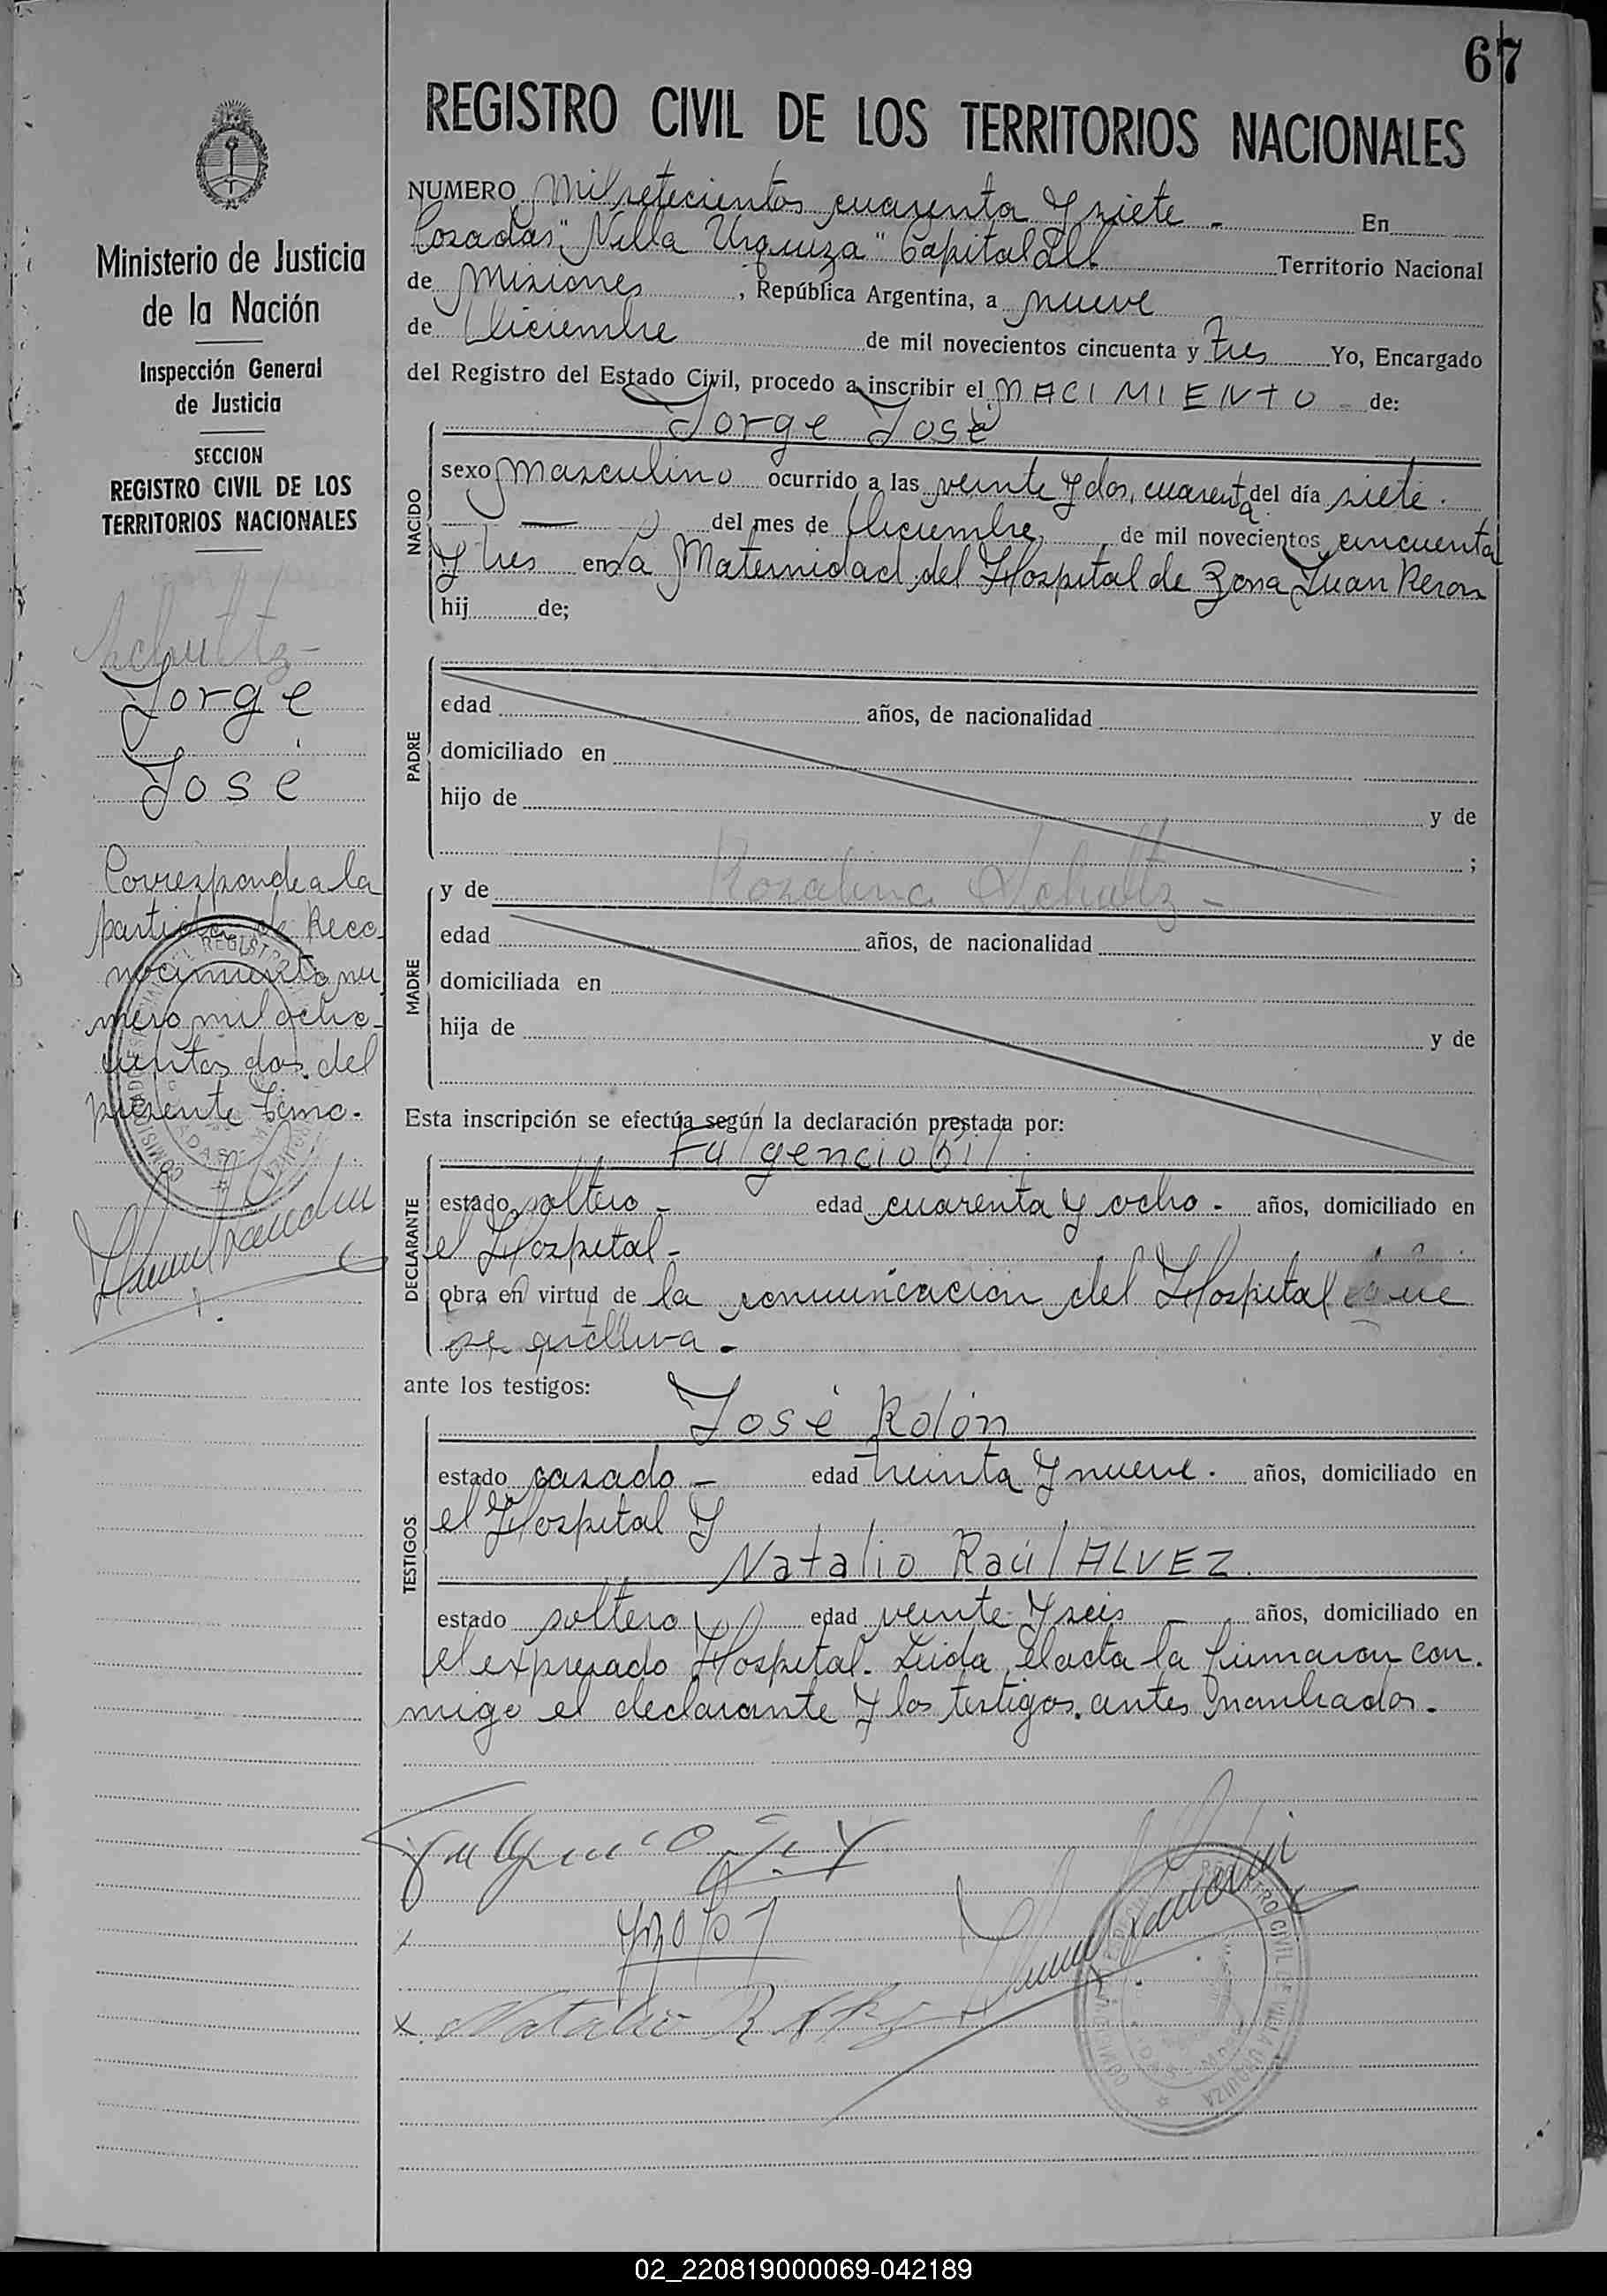 67
REGISTRO CIVIL DE LOS TERRITORIOS NACIONALES
Ministerio de Justicia
de la Nación
Inspección General
de Justicia
SECCION
REGISTRO CIVIL DE LOS
TERRITORIOS NACIONALES
Schultz-
Jorge
José
Corresponde a la
partida de Reco-
nocimiento nu
mero mil ocho-
cientos dos. del
presente tomo.
NUMERO Mil setecientos cuarenta y siete - En
Posadas "Villa Urquiza" Capital del Territorio Nacional
de Misiones, República Argentina, a nueve
de Diciembre de mil novecientos cincuenta y tres Yo, Encargado
del Registro del Estado Civil, procedo a inscribir el NACIMIENTO - de:
Jorge José
NACIDO
sexo masculino ocurrido a las veinte y dos, cuarenta del día siete.
— del mes de Diciembre, de mil novecientos cincuenta
y tres en La Maternidad del Hospital de Zona Juan Peron
hij de;
PADRE
edad años, de nacionalidad
domiciliado en
hijo de y de
;
y de Rozalina Schultz -
MADRE
edad años, de nacionalidad
domiciliada en
hija de y de
Esta inscripción se efectúa según la declaración prestada por:
Fulgencio Gil
DECLARANTE
estado soltero - edad cuarenta y ocho - años, domiciliado en
el Hospital -
obra en virtud de la comunicación del Hospital que
se archiva.
ante los testigos:
José Rolón
TESTIGOS
estado casado - edad treinta y nueve. años, domiciliado en
el Hospital y
Natalio Raúl ALVEZ.
estado soltero edad veinte y seis - años, domiciliado en
el expresado Hospital. Leida el acta la firmaron con.
migo el declarante y los testigos. antes nombrados.
Fulgencio Gil
Natalio R
REGISTRO CIVIL DE VILLA URQUIZA
02_220819000069-042189